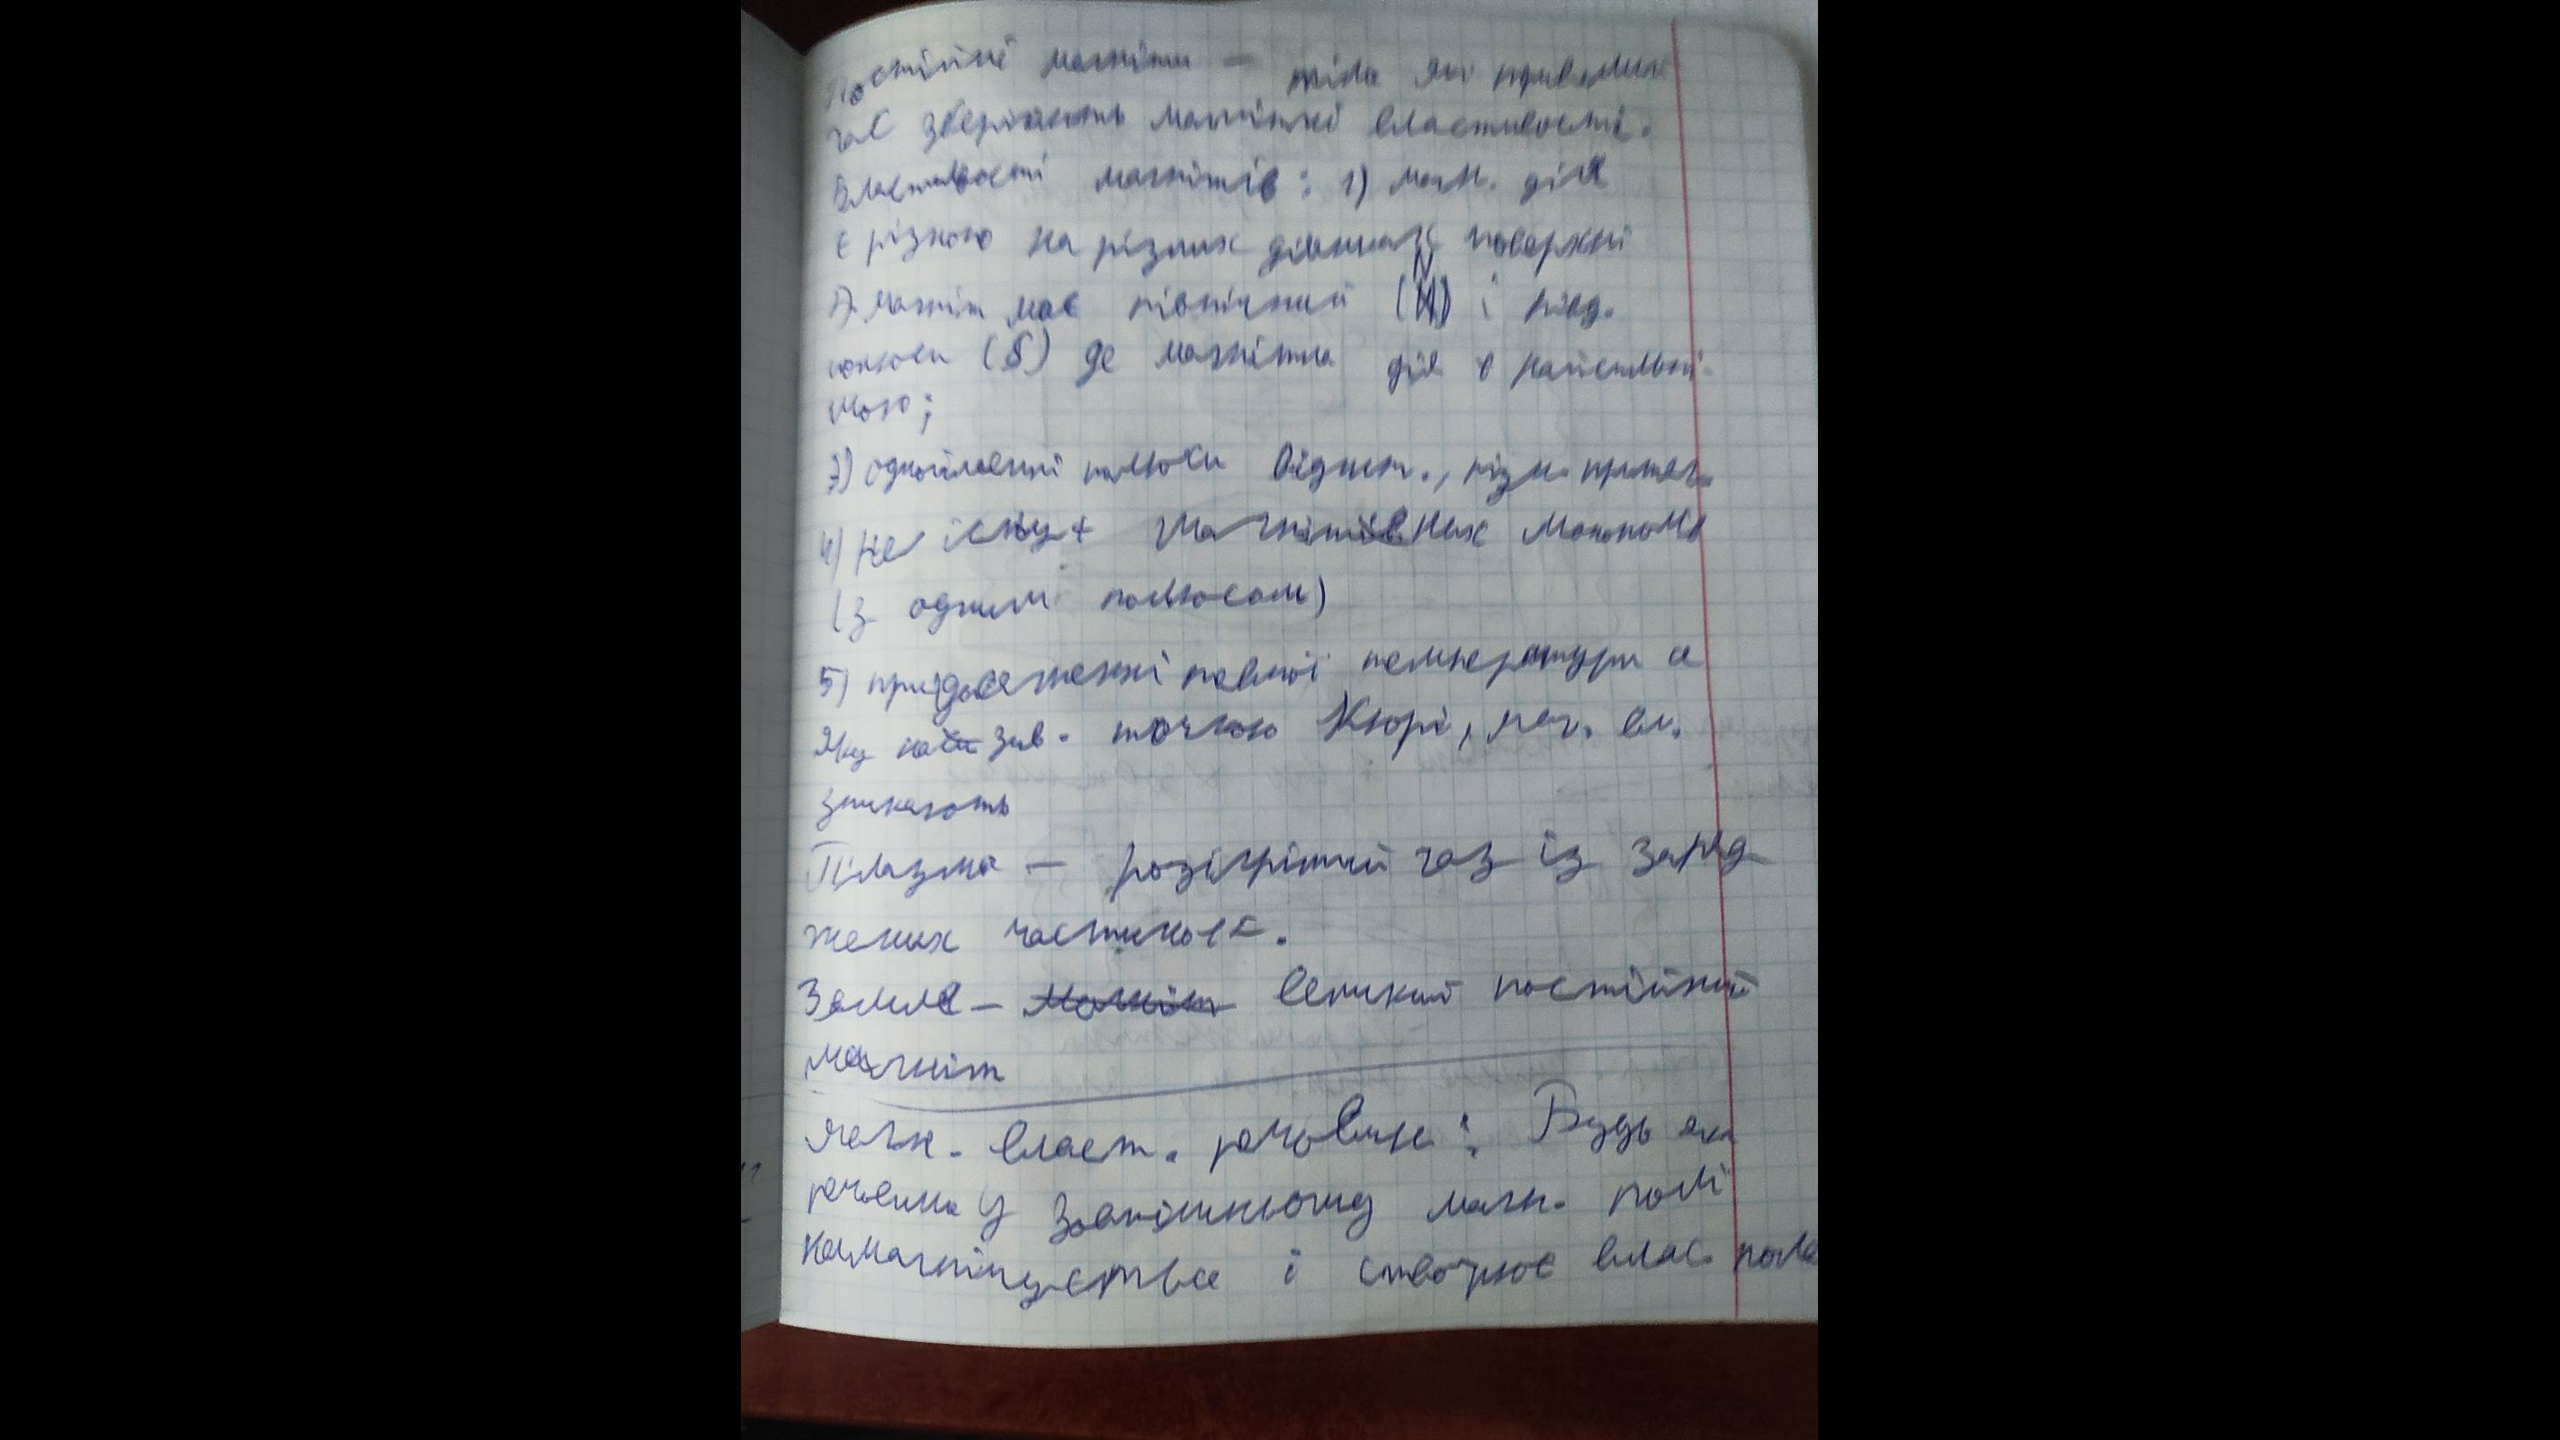 Постійні магніти — тіла які тривалий
час зберігають магнітні властивості.
Властивості магнітів: 1) магн. дія
є різною на різних ділянках поверхні
2) магніт має північний (N) і півд.
полюси (S) де магнітна дія є найсильні-
шою;
3) однойменні полюси відшт., різн. притяг.
4) не існує магнітних монополів
(з одним полюсом)
5) при досягненні певної температури
яку назив. точкою Кюрі, маг. вл.
зникають
Плазма — розігрітий газ із заряд
жених частинок.
Земля — великий постійний
магніт
Магн. власт. речовин: Будь яка
речовина у зовнішньому магн. полі
намагнічується і створює влас. поле